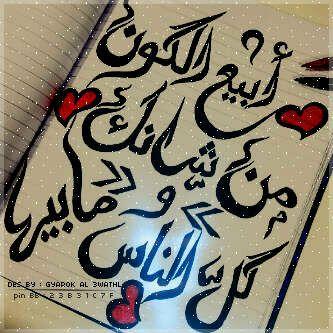 أبيع الكون
من شانك
و ما بيرها
كل الناس
DES BY : GYAROK AL 3WATHL
pin BB : 2 3 B 3 1 C 7 F